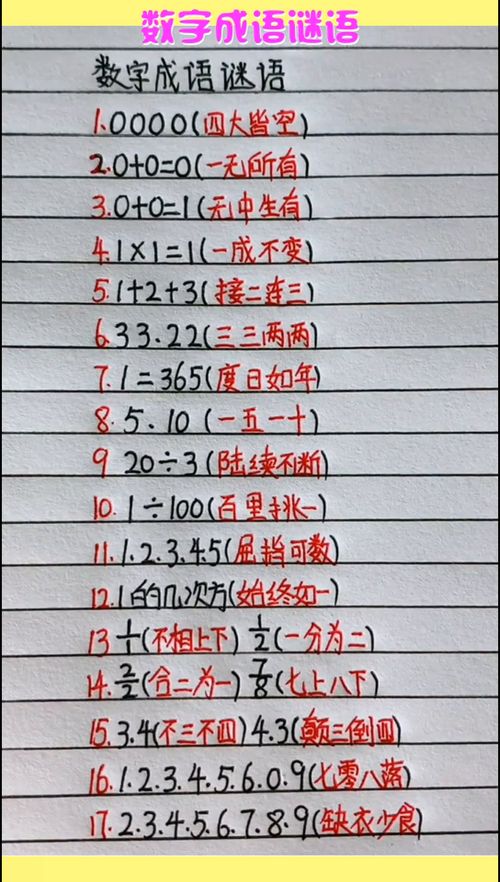 数字成语谜语
数字成语谜语
1.0000(四大皆空)
2.0+0=0(一无所有)
3.0+0=1(无中生有)
4.1×1=1(一成不变)
5.1+2+3(接二连三)
6.33.22(三三两两)
7.1=365(度日如年)
8.5.10(一五一十)
9 20÷3(陆续不断)
10.1÷100(百里挑一)
11.1.2.3.4.5(屈指可数)
12.1的几次方(始终如一)
13 1/1(不相上下) 1/2(一分为二)
14.2/2(合二为一) 7/8(七上八下)
15.3.4(不三不四)4.3(颠三倒四)
16.1.2.3.4.5.6.0.9(七零八落)
17.2.3.4.5.6.7.8.9(缺衣少食)